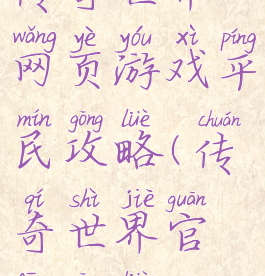 wǎng yè yóu xì píng
网页游戏平
mín gōng lüè chuán
民攻略(传
qí shì jiè guān
奇世界官